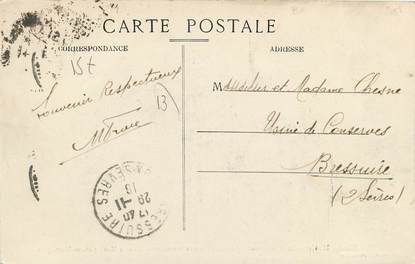 CARTE POSTALE
CORRESPONDANCE
ADRESSE
15t
13
Souvenir Respectueux
Monsieur et Madame Chesne
Usine de Conserves
Bressuire
(2 Sèvres)
BRESSUIRE
17 40
28-11
16
SÈVRES